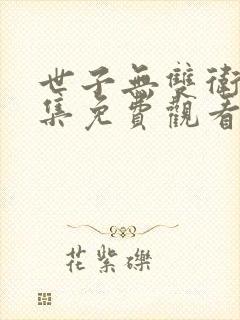 世子無雙衛
集免費觀看
花紫礫